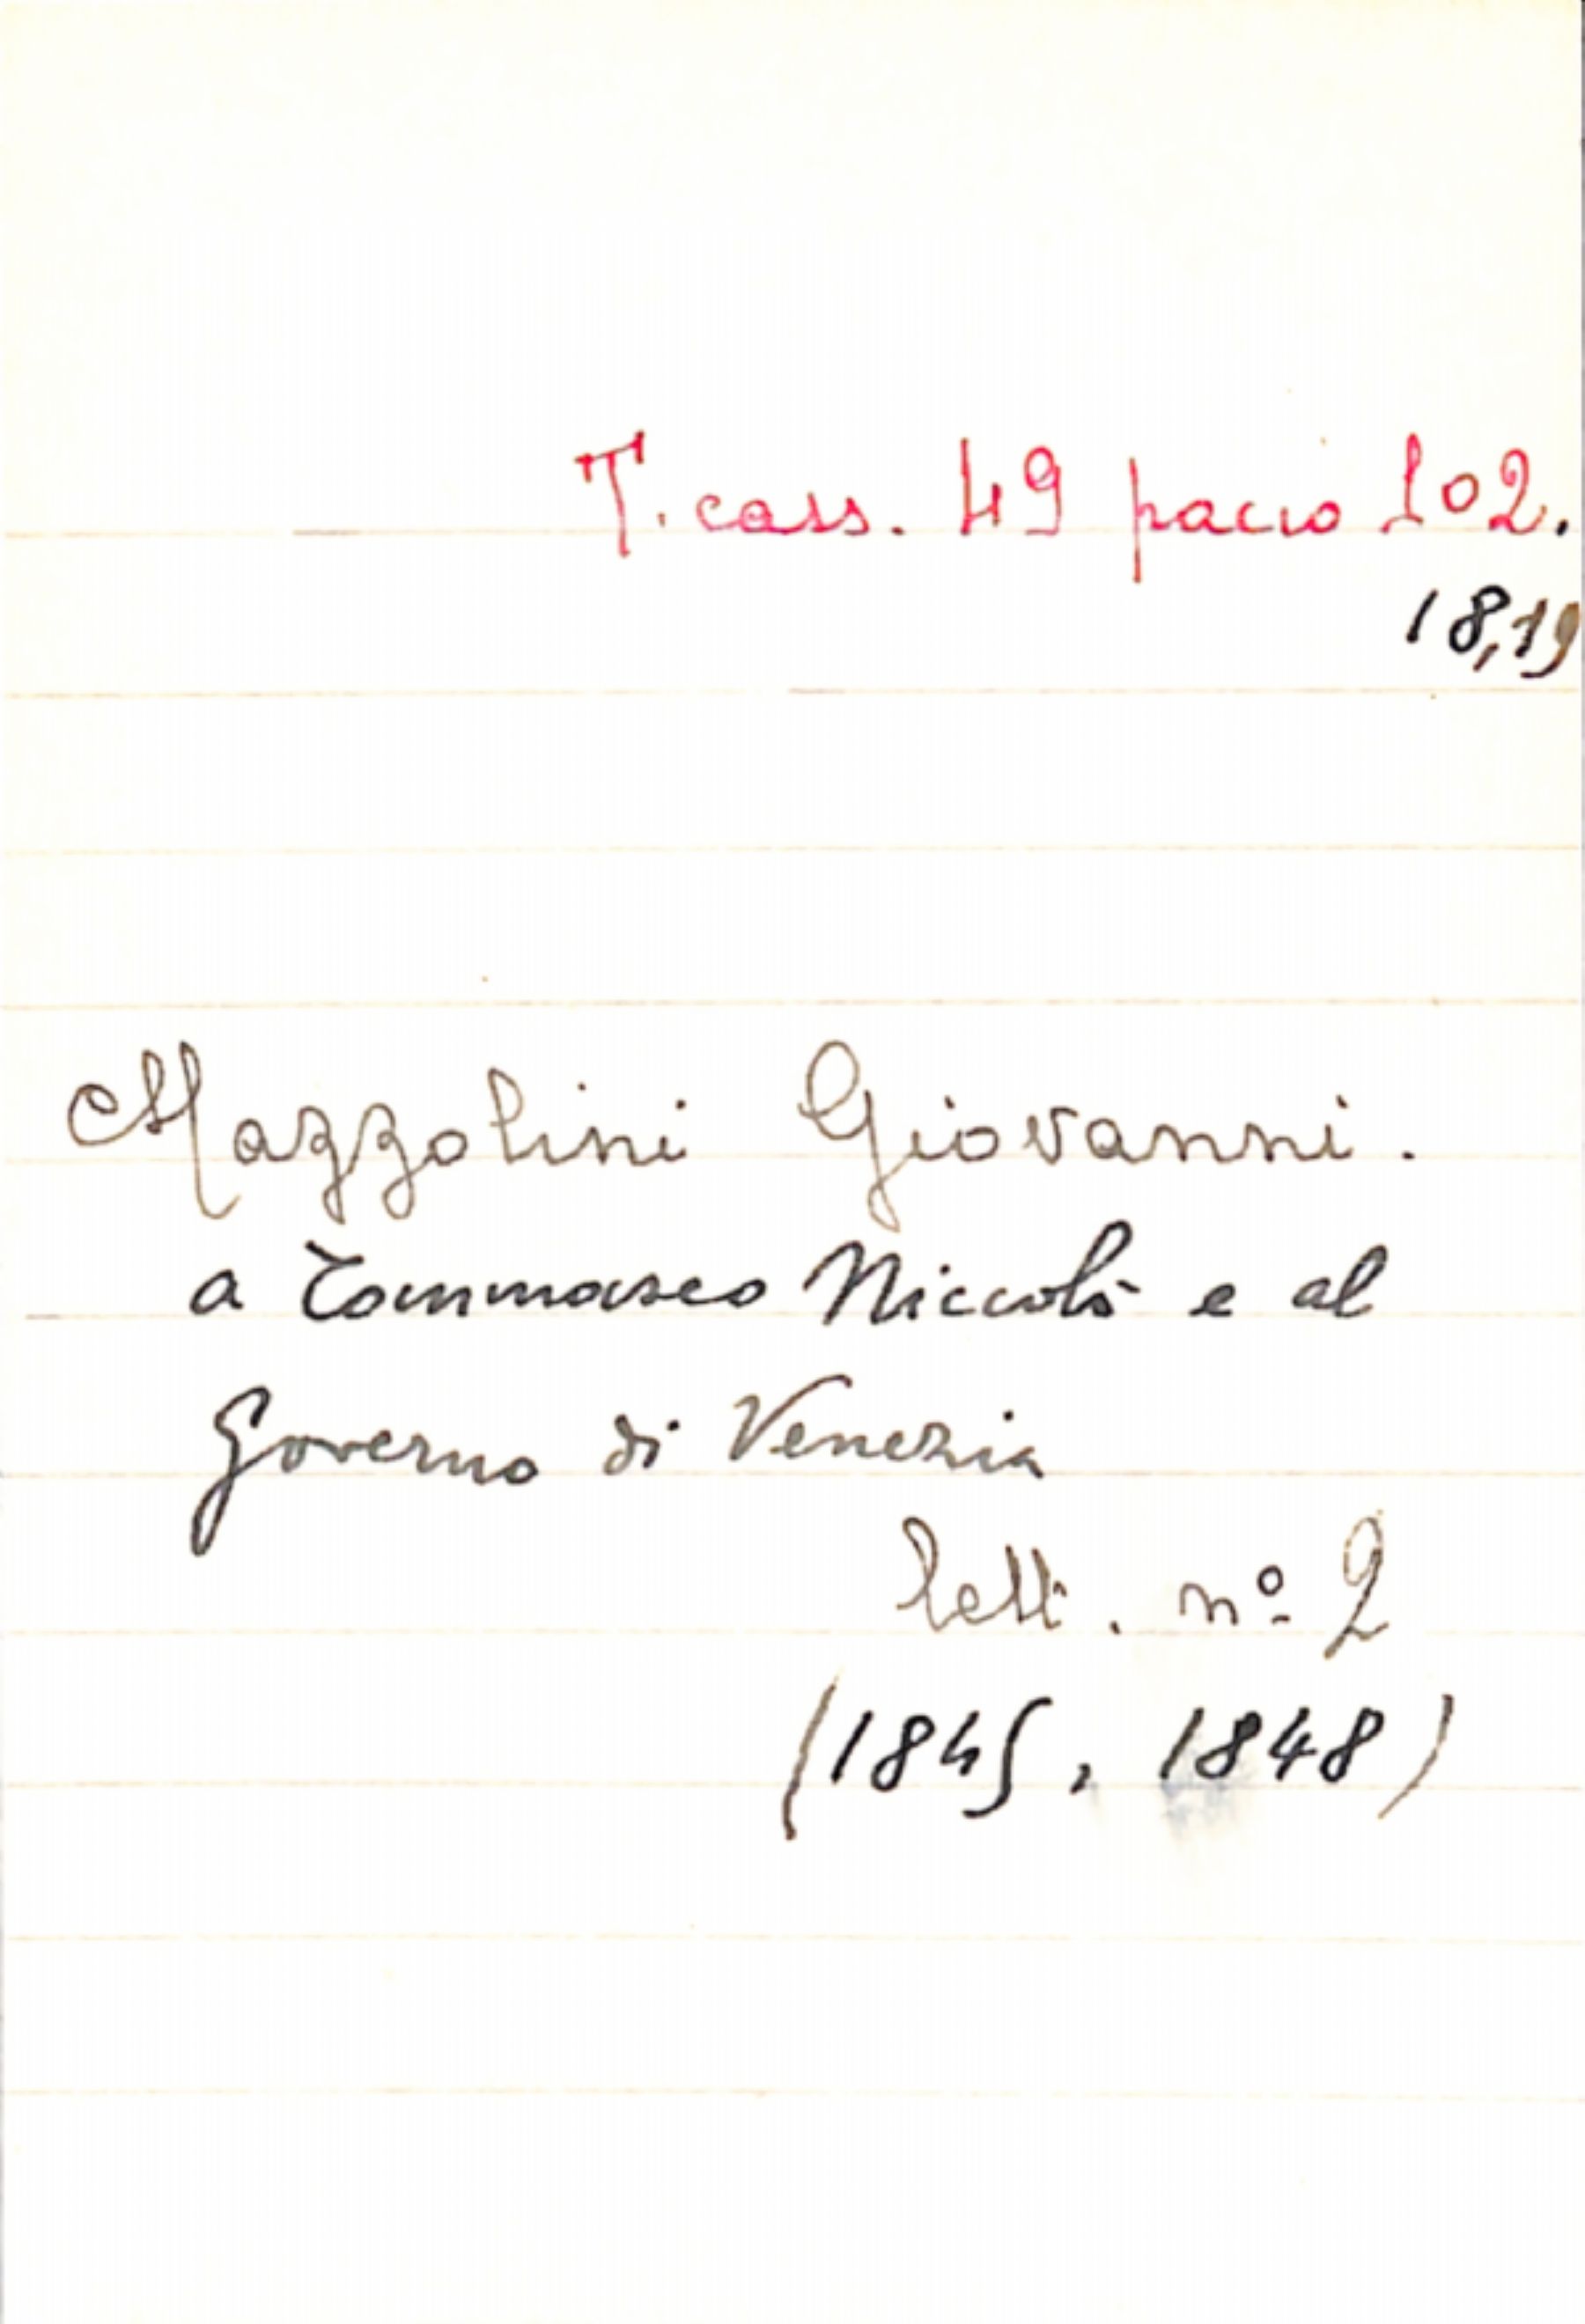 T. cass. 49 pacco 102.
18,19
Mazzolini Giovanni.
a Tommaseo Niccolò e al
Governo di Venezia
lett. nº 2
(1845, 1848)